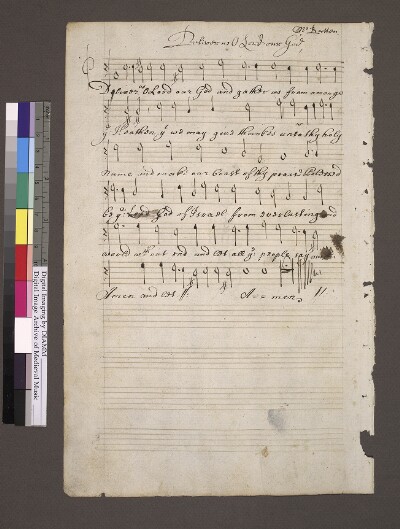 Deliver us O Lord our God
Deliver us O Lord our God and gather us from amonge
yͤ Heathen, yͭ we may give thankes unto thy holy
name and make our boast of thy praise Blessed
be yͤ Lord God of Israel from everlasting and
world wᵗʰout end and let all yͤ people say
Amen and let A = = men
Digital Imaging by DIAMM
Digital Image Archive of Medieval Music